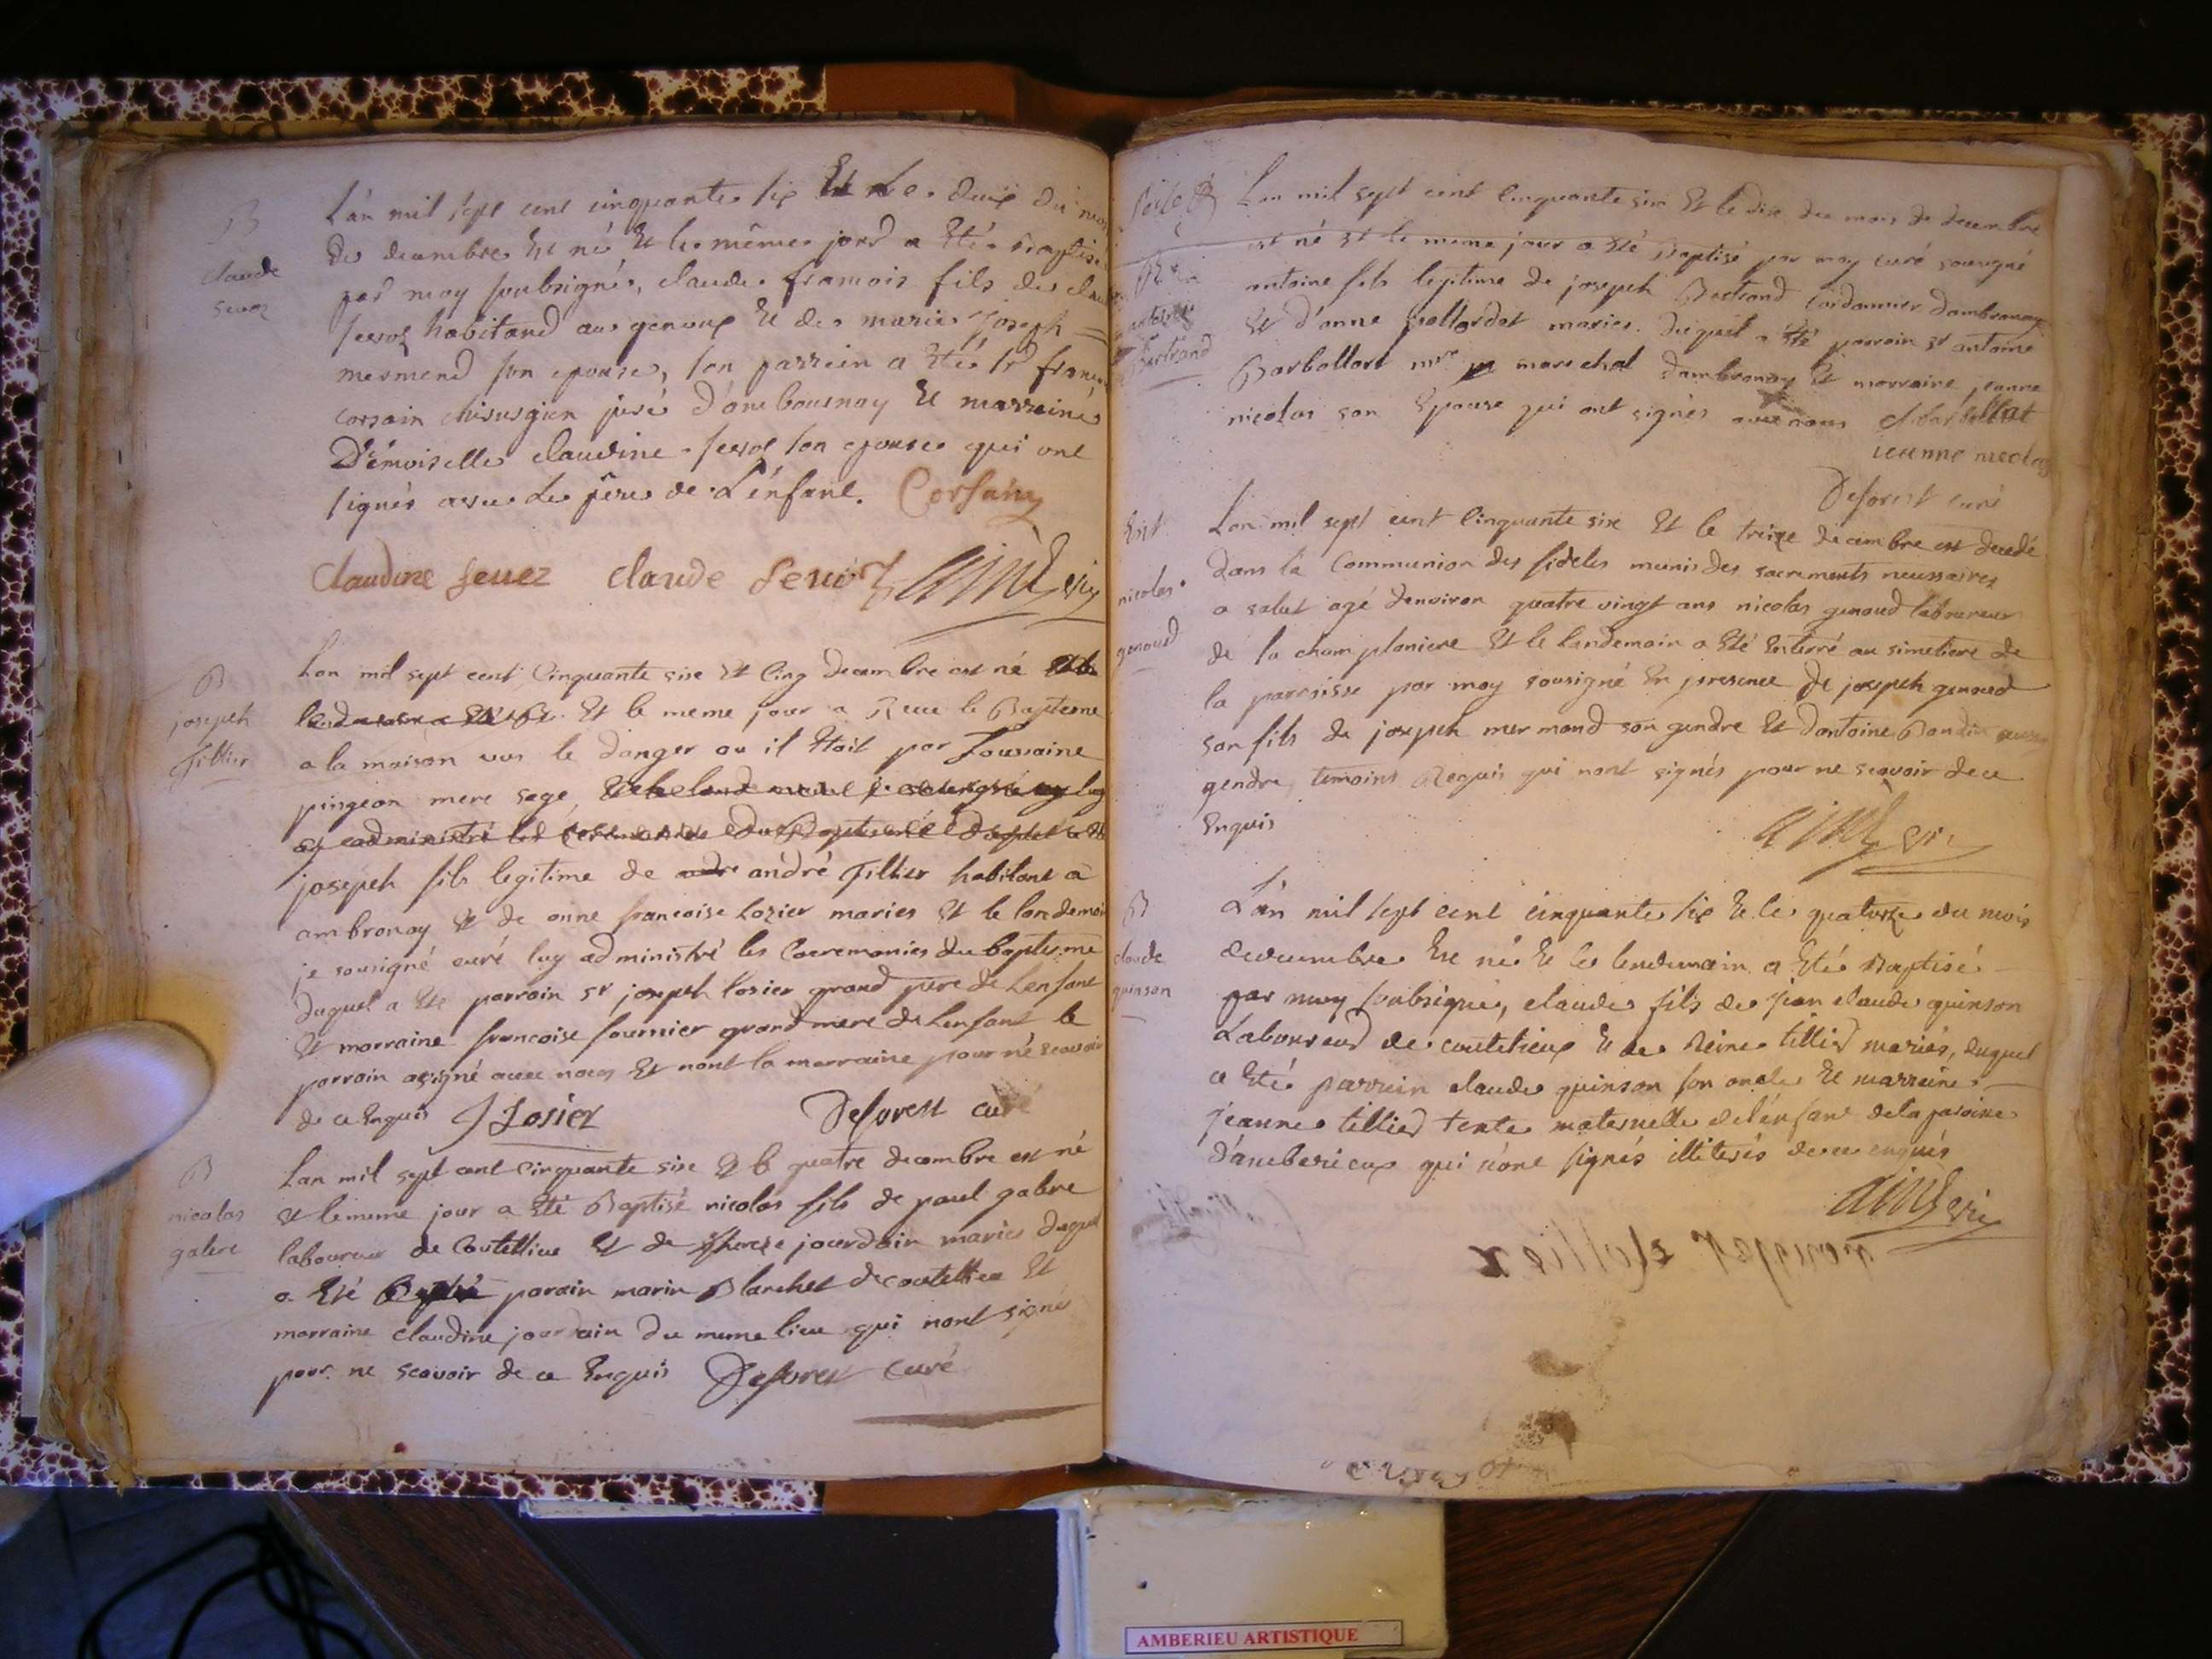 B
claude
sevoz
L'an mil sept cent cinquante six Et Le deux du mois
de decembre Est né Et le même jour a Eté Baptisé
par moy soubsigné, claude francois fils de claude
sevoz habitand au genoux Et de marie joseph
mermend son epouse, son parrein a Eté sr francois
corsain chirurgien juré d'ambournay Et marreine
Demoiselle claudine sevoz son epouse qui ont
signés avec le pere de L'enfant. Corsain
Claudine sevez claude sevoz
B
joseph
Tillier
Lan mil sept cent Cinquante sixe Et Cinq decembre est né
Et le meme jour a Recu le Bapteme
a la maison vus le danger ou il Etoit par Toussaine
pingeon mere sage,
joseph fils legitime de andré Tillier habitant a
ambronay Et de anne francoise Losier mariés Et le landemain
je sousigné curé luy administré les Cæremonies du bapteme
duquel a Eté parrain sr joseph Losier grand pere de Lenfant
Et marraine francoise fournier grand mere de Lenfant, le
parrain a signé avec nous Et nont la marraine pour ne scavoir
de ce Enquis J Losier Deforest curé
B
nicolas
galere
Lan mil sept cent Cinquante sixe Et le quatre decembre est né
Et le meme jour a Eté Baptisé nicolas fils de paul galere
laboureur de Coutellieu Et de therese jourdain mariés duquel
a Eté parain marin Blanchet de coutellieu Et
marraine claudine jourdain du meme lieu qui nont signé
pour ne scavoir de ce Enquis Deforest Curé
B
antoine
Bertrand
Lan mil sept cent Cinquante six Et le dix du mois de decembre
est né Et le meme jour a Eté Baptisé par moy curé sousigné
antoine fils legitime de joseph Bertrand Cordonnier dambronay
Et d'anne mariés. duquel a Eté parrain sr antoine
Barbollat mre marechal dambronay Et marraine jeanne
nicolas son Epouse qui ont signés avec nous Barbollat
ieanne nicolas
Deforest curé
Ent
nicolas
genoud
Lan mil sept cent Cinquante sixe Et le treize decembre est decedé
dans la Communion des fideles munis des sacrements necessaires
a salut agé denviron quatre vingt ans nicolas genoud laboureur
de la champlaniere Et le landemain a Eté Enterré au simetiere de
la parroisse par moy sousigné En presence de joseph genoud
son fils de joseph mermand son gendre Et dantoine Bondin aussi
gendre, temoins Requis qui nont signés pour ne scavoir de ce
Enquis
B
claude
quinson
L'an mil sept cent cinquante six Et le quatorze du mois
de decembre Est né Et le lendemain a Eté Baptisé
par moy soubsigné, claude fils de jean claude quinson
Laboureur de coutelieux Et de Reine tillier mariés, duquel
a Eté parrein claude quinson son oncle Et marreine
jeanne tillier tente maternelle de l'enfant de la paroisse
d'amberieux qui n'ont signés illiterés de ce enquis
AMBERIEU ARTISTIQUE